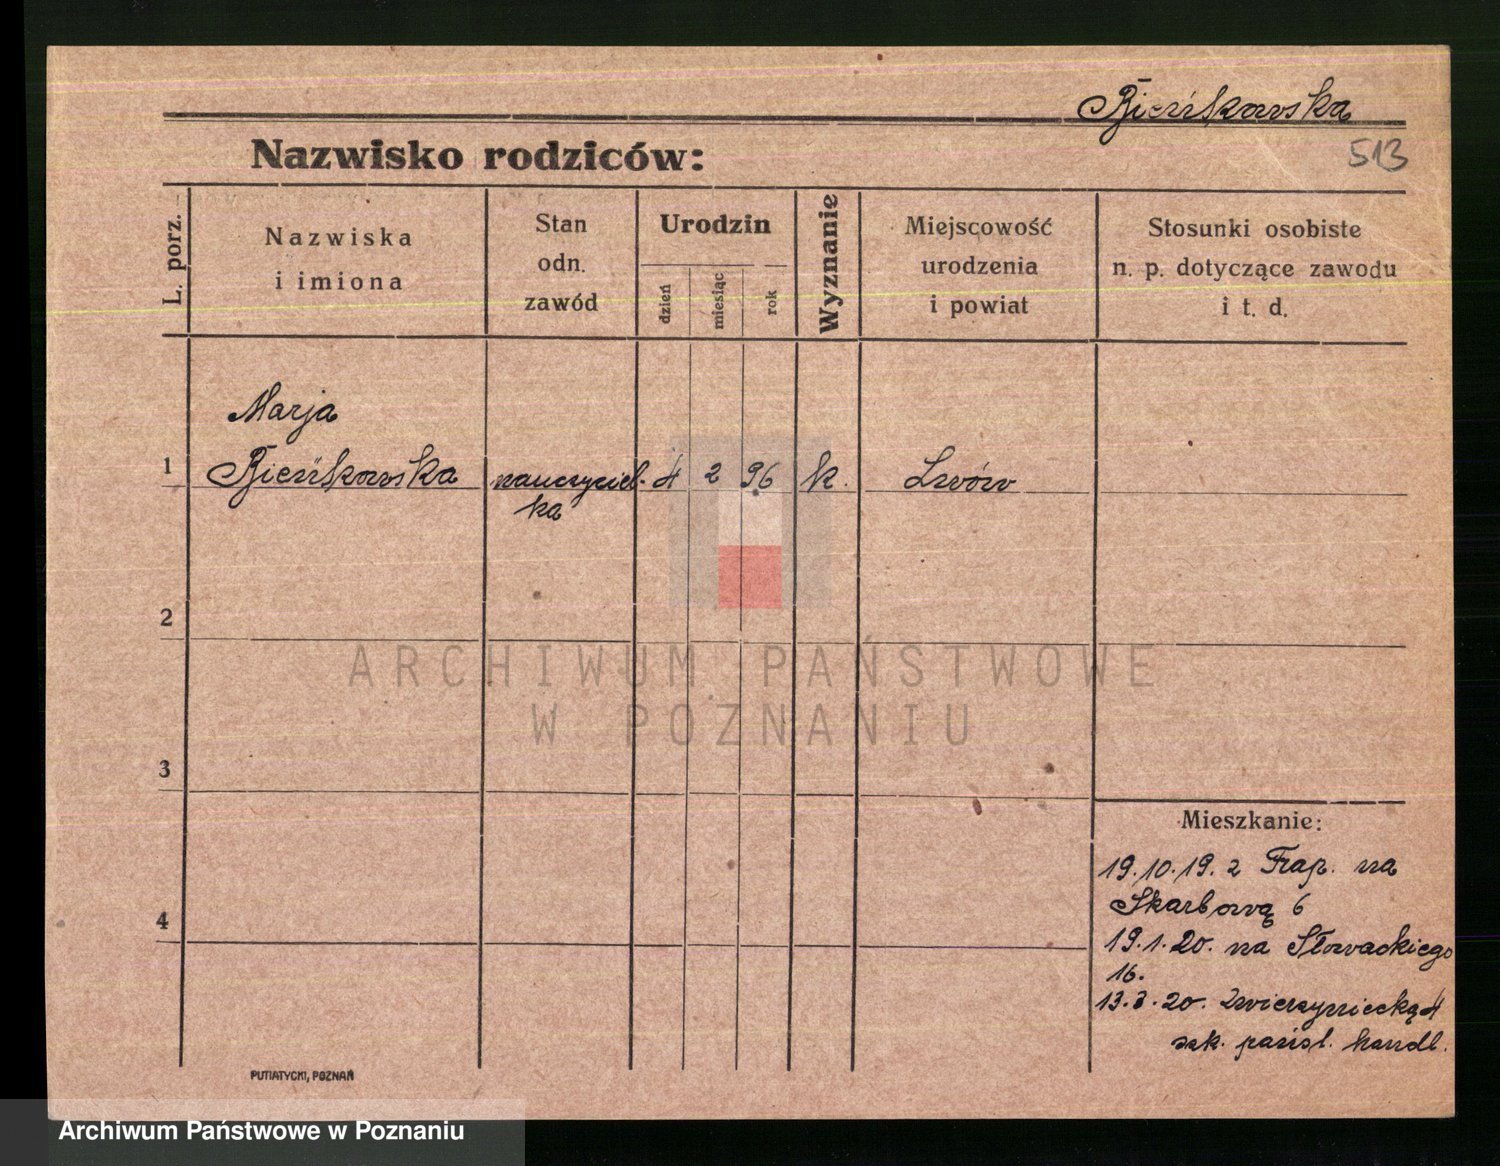 Bieńkowska
513
Nazwisko rodziców:
L. porz.
Nazwiska
i imiona
Stan
odn.
zawód
Urodzin
dzień
miesiąc
rok
Wyznanie
Miejscowość
urodzenia
i powiat
Stosunki osobiste
n. p. dotyczące zawodu
i t. d.
Marja
1 Bieńkowska nauczyciel- 4 2 96 k. Lwów
ka
2
ARCHIWUM PAŃSTWOWE
W POZNANIU
3
Mieszkanie:
19.10.19. z Trap. na
Skarbową 6
4
19.1.20. na Słowackiego
16.
13.3.20. Zwierzyniecką 4
szk. państ. handl.
PUTIATYCKI, POZNAŃ
Archiwum Państwowe w Poznaniu